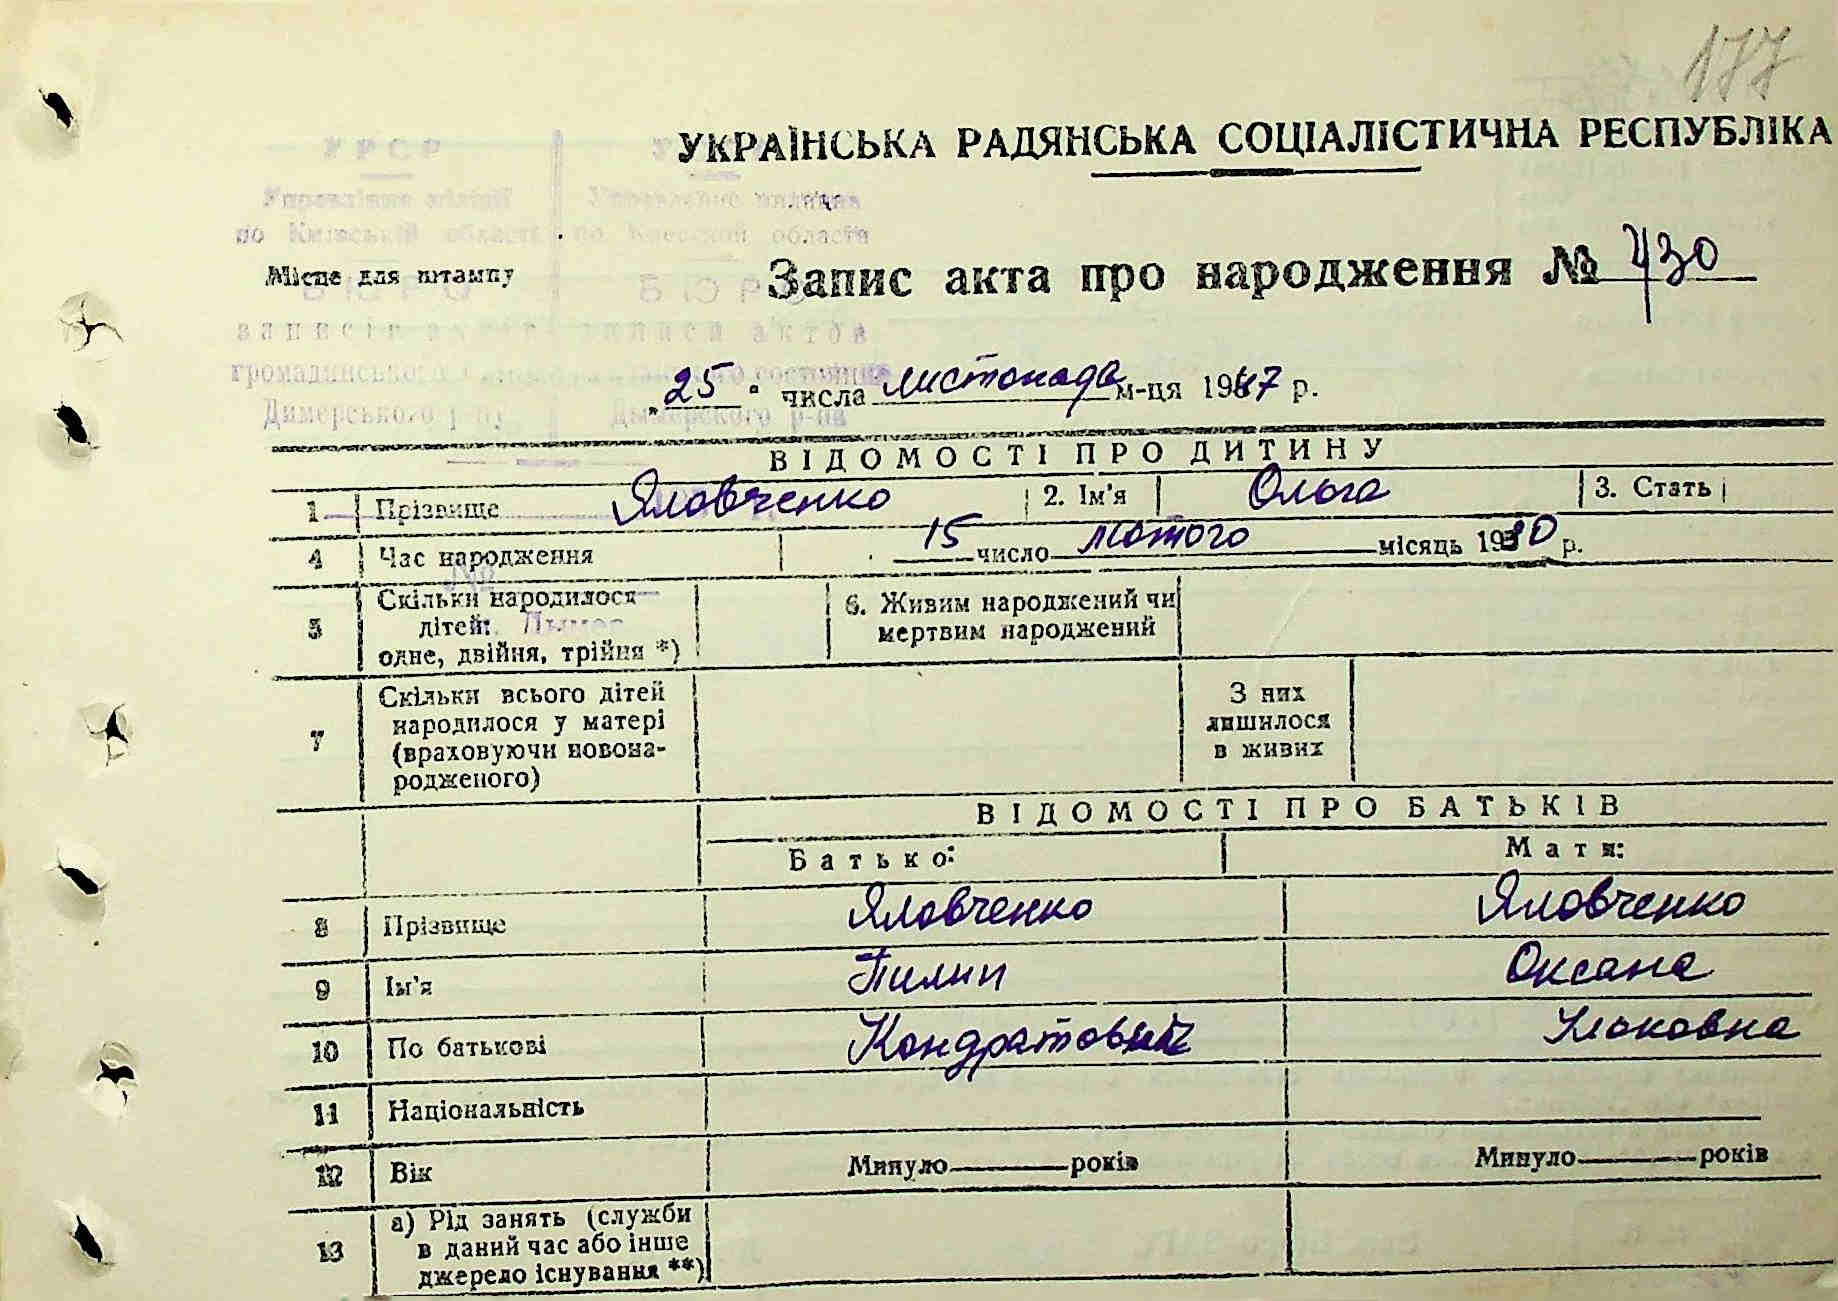 177
УКРАЇНСЬКА РАДЯНСЬКА СОЦІАЛІСТИЧНА РЕСПУБЛІКА
УРСР
Управління міліції Управление милиции
по Київській області по Киевской области
Місце для штампу
Запис акта про народження № 730
БЮРО БЮРО
записів актів записи актов
громадянського состояния
Димерського р-ну Дымерского р-на
„25“ числа листопада м-ця 1947 р.
ВІДОМОСТІ ПРО ДИТИНУ
1 Прізвище Яловченко 2. Ім'я Ольга 3. Стать
4 Час народження 15 число лютого місяць 1930 р.
№
5 Скільки народилося дітей: одне, двійня, трійня *) 6. Живим народжений чи мертвим народжений
7 Скільки всього дітей народилося у матері (враховуючи новонародженого) З них лишилося в живих
ВІДОМОСТІ ПРО БАТЬКІВ
Батько: Мати:
8 Прізвище Яловченко Яловченко
9 Ім'я Пилип Оксана
10 По батькові Кондратович
11 Національність
12 Вік Минуло роківMинуло років
13 а) Рід занять (служби в даний час або інше джерело існування **)